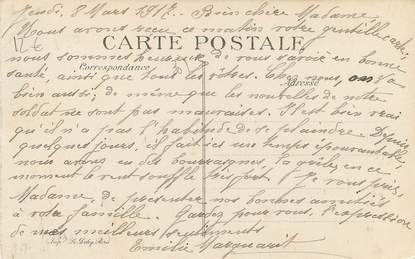 Jeudi, 8 Mars 1917. - Bien chère Madame,
Nous avons reçu ce matin votre gentille carte,
CARTE POSTALE
nous sommes heureux de vous savoir en bonne
Correspondance
santé, ainsi que tous les vôtres. Chez nous, on va
Adresse
bien aussi; de même que les nouvelles de notre
soldat ne sont pas mauvaises. Il est bien vrai
qu'il n'a pas l'habitude de se plaindre. Depuis
quelques jours, il fait ici un temps épouvantable,
nous avons eu des bourrasques, la grêle, en ce
moment le vent souffle très fort. Je vous prie,
Madame, de présenter nos bonnes amitiés
à votre famille. Gardez pour vous, l'expression
de mes meilleurs sentiments
Émilie